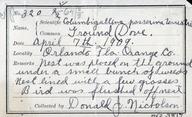 No. 320
Scientific Columbigallina passerina terrestris
Name,
Common Ground Dove.
Date April 7th. 1909.
Locality Orlando Fla. Orange Co.
Remarks Nest was placed on the ground
under a small bunch of weeds
Nest lined with a few grasses
Bird was flushed off nest
Collected by Donald J. Nicholson